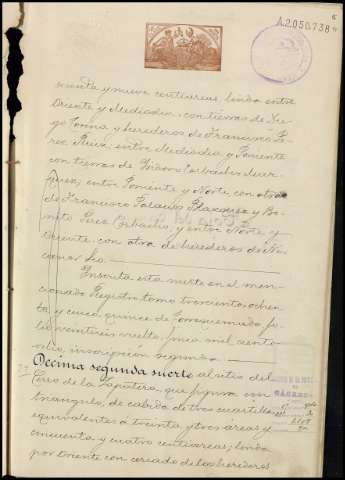 A.2050.738
senta y nueve centiareas; linda entre
Oriente y Mediodia, con tierras de
y herederos de Francisco
entre Mediodia y Poniente
con tierras de Isidoro
entre Poniente y Norte, con otra
de Francisco Palacios Blazquez y
y entre Norte y
Oriente con otra de herederos de
Inscrita esta suerte en el men-
cionado Registro, tomo trescientos ochen-
ta y cinco, quince de Torrequemada, fo-
lio veintiseis vuelto, finca mil ciento
inscripcion segunda.
Decima segunda suerte al sitio del
Cerro de la Zapatera que figura un
triangulo, de cabida de tres cuartillas
equivalentes a treinta y tres areas y
cincuenta y cuatro centiareas; linda
por Oriente con cercado de los herederos